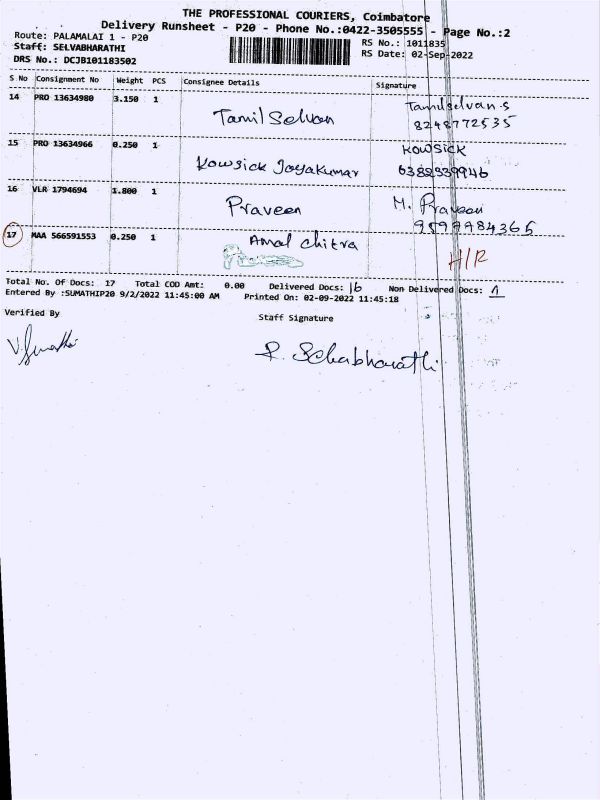 THE PROFESSIONAL COURIERS, Coimbatore
Delivery Runsheet - P20 - Phone No.:0422-3505555 - Page No.:2
Route: PALAMALAI 1 - P20
RS No.: 1011835
Staff: SELVABHARATHI
RS Date: 02-Sep-2022
DRS No.: DCJB101183502
S No Consignment No Weight PCS Consignee Details Signature
14 PRO 13634980 3.150 1 Tamil Selvan Tamilselvan.s
8248772535
15 PRO 13634966 0.250 1 Kowsick Jayakumar KOWSICK
6382939946
16 VLR 1794694 1.800 1 Praveen M. Praveen
17 MAA 566591553 0.250 1 Amal chitra H/R
Total No. Of Docs: 17 Total COD Amt: 0.00 Delivered Docs: 16 Non Delivered Docs: 1
Entered By :SUMATHIP20 9/2/2022 11:45:00 AM Printed On: 02-09-2022 11:45:18
Verified By
Staff Signature